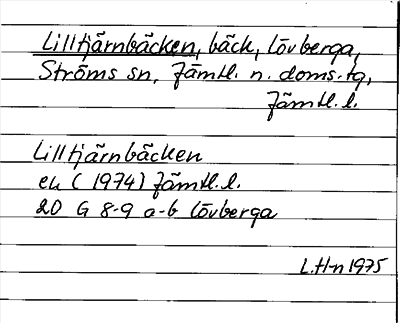 Lilltjärnbäcken, bäck, Lövberga,
Ströms sn, Jämtl. n. doms. tg,
Jämtl. l.
Lilltjärnbäcken
ek (1974) Jämtl. l.
20 G 8-9 a-b Lövberga
L.H-n 1975